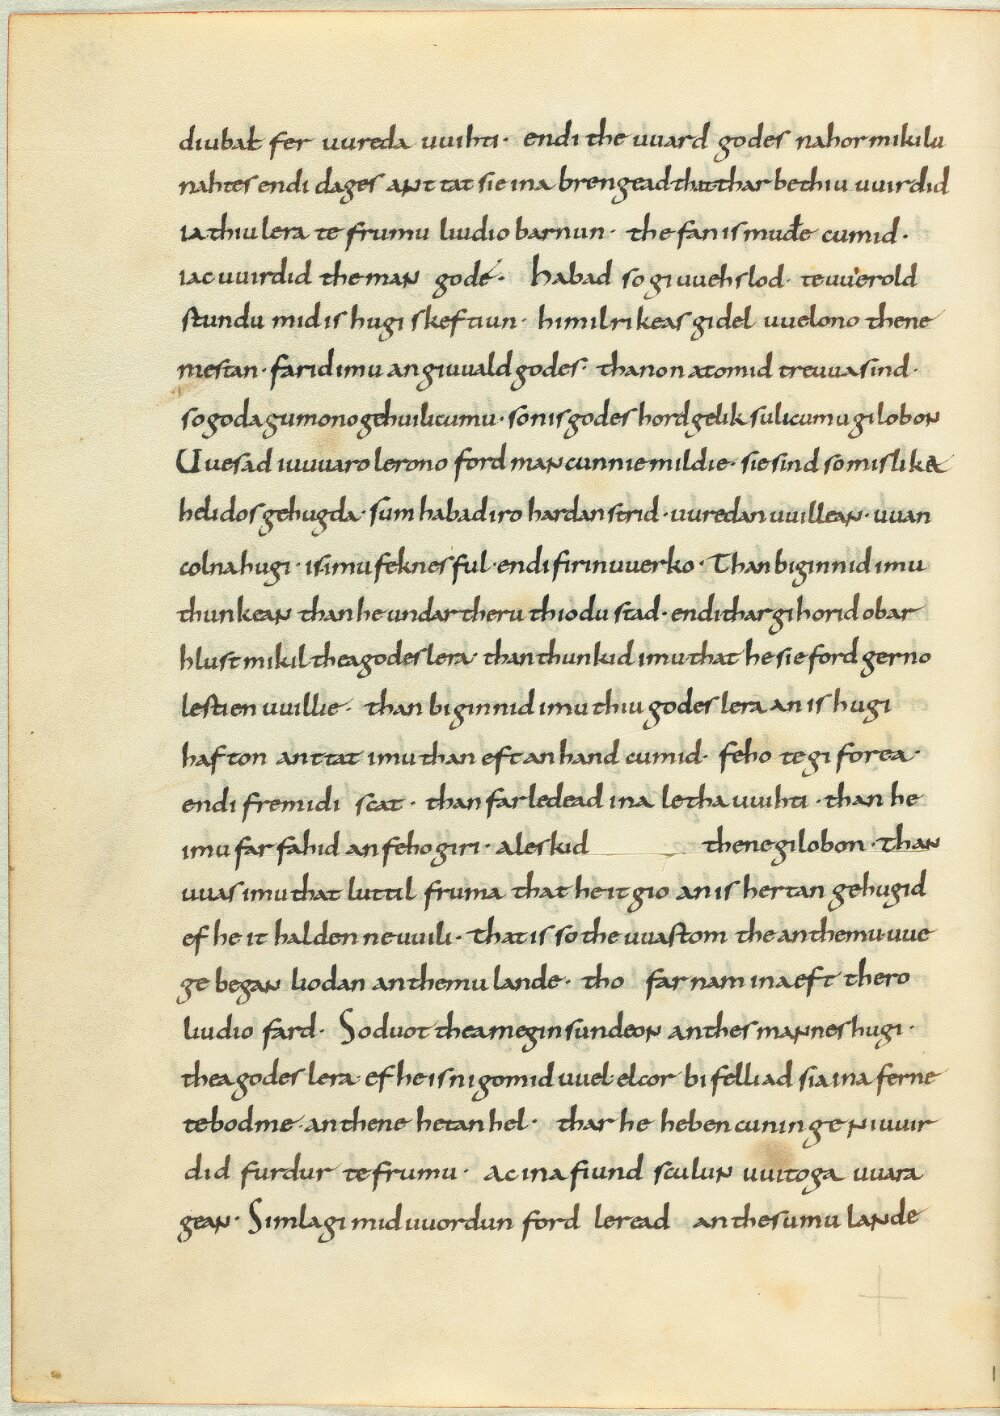 diubał fer uureda uuihti· endi the uuard godes nahor mikilu
nahtes endi dages anttat sie ina brengead that thar bethiu uuirdid
ia thiu lera te frumu liudio barnun· the fan is muđe cumid·
iac uuirdid the man gode·́ Habad so giuuehslod· te uuerold
stundu mid is hugiskeftiun· himilrikeas gidel uuelono thene
mestan· farid imu an giuuald godes· thanon atomid treuua sind·
so goda gumono gehuilicumu· so nis godes hord gelik sulicumu gilobon
Uuesad iu uuaro lerono ford mancunnie mildie· sie sind so mislika
helidos gehugda· sum habad iro hardan strid· uuredan uuillean· uuan
colna hugi· is imu feknes ful· endi firinuuerko· Than biginnid imu
thunkean than he undar theru thiodu stad· endi thar gihorid obar
hlust mikil thea godes lera· than thunkid imu that he sie ford gerno
lestien uuillie· than biginnid imu thiu godes lera an is hugi
hafton anttat imu than eft an hand cumid· feho te giforea·
endi fremidi scat· than farledead ina letha uuihti· than he
imu farfahid an fehogiri· aleskid thene gilobon· Than
uuas imu that luttil fruma that he it gio an is hertan gehugid
ef he it halden ne uuili· That is so the uuastom the an themu uue
ge began liodan an themu lande· tho farnam ina eft thero
liudio fard· So duot thea meginsundeon an thes mannes hugi·
thea godes lera· ef he is ni gomid uuel· elcor bifelliad sia ina ferne
te bodme· an thene hetan hel· thar he hebencuninge ni uuir
did furdur te frumu· ac ina fiund sculun uuitoga uuara
gean· Simla gi mid uuordun ford leread an thesumu lande